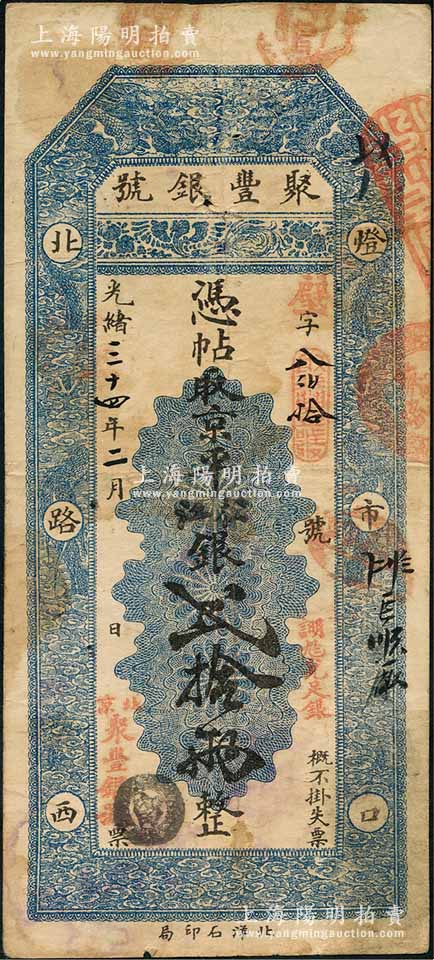 上海陽明拍賣
www.yangmingauction.com
聚豐銀號
燈市口
北路西
字八伯拾號
概不掛失票
憑帖取京平松江銀弍拾兩整
光緒三十四年二月日
北京聚豐銀號票
北洋石印局
上海陽明拍賣
www.yangmingauction.com
上海陽明拍賣
www.yangmingauction.com